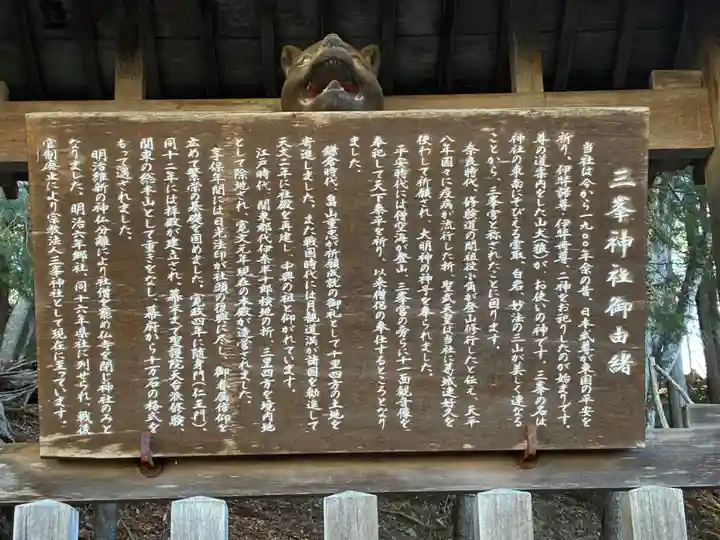 三峯神社御由緒
当社は今から一九〇〇年余の昔、日本武尊が東国の平安を
祈り、伊弉諾尊・伊弉冊尊、二神をお祀りしたのが始まりです。
尊の道案内をした山犬(狼)が、お使いの神です。三峯の名は
神社の東南にそびえる雲取、白岩、妙法の三山が美しく連なる
ことから、三峯宮と称されたことに因ります。
奈良時代、修験道の開祖役小角が登山修行したと伝え、天平
八年国々に疫病が流行した折、聖武天皇は当社に葛城連好久を
使わして祈願され、大明神の神号を奉られました。
平安時代には僧空海が登山、三峯宮の傍らに十一面観音像を
奉祀して天下泰平を祈り、以来僧侶の奉仕するところとなり
ました。
鎌倉時代、畠山重忠が祈願成就の御礼として十里四方の土地を
寄進しました。また戦国時代には月観道満が諸国を勧進して
天文二年に社殿を再建し、中興の祖と仰がれています。
江戸時代、関東郡代伊奈半十郎検地の折、三里四方を境内地
として除地され、寛文元年現在の本殿が造営されました。
享保年間には日光法印が社頭の復興に尽し、御眷属信仰を
広めて繁栄の基礎を固めました。寛政四年に随身門(仁王門)
同十二年には拝殿が建立され、幕末まで聖護院天台派修験、
関東の総本山として重きをなし、幕府から十万石の格式を
もって遇されました。
明治維新の神仏分離により社僧を廃め仏寺を閉し神社のみと
なりました。明治六年郷社、同十六年県社に列せられ、戦後
官制廃止により宗教法人三峯神社として現在に至っています。